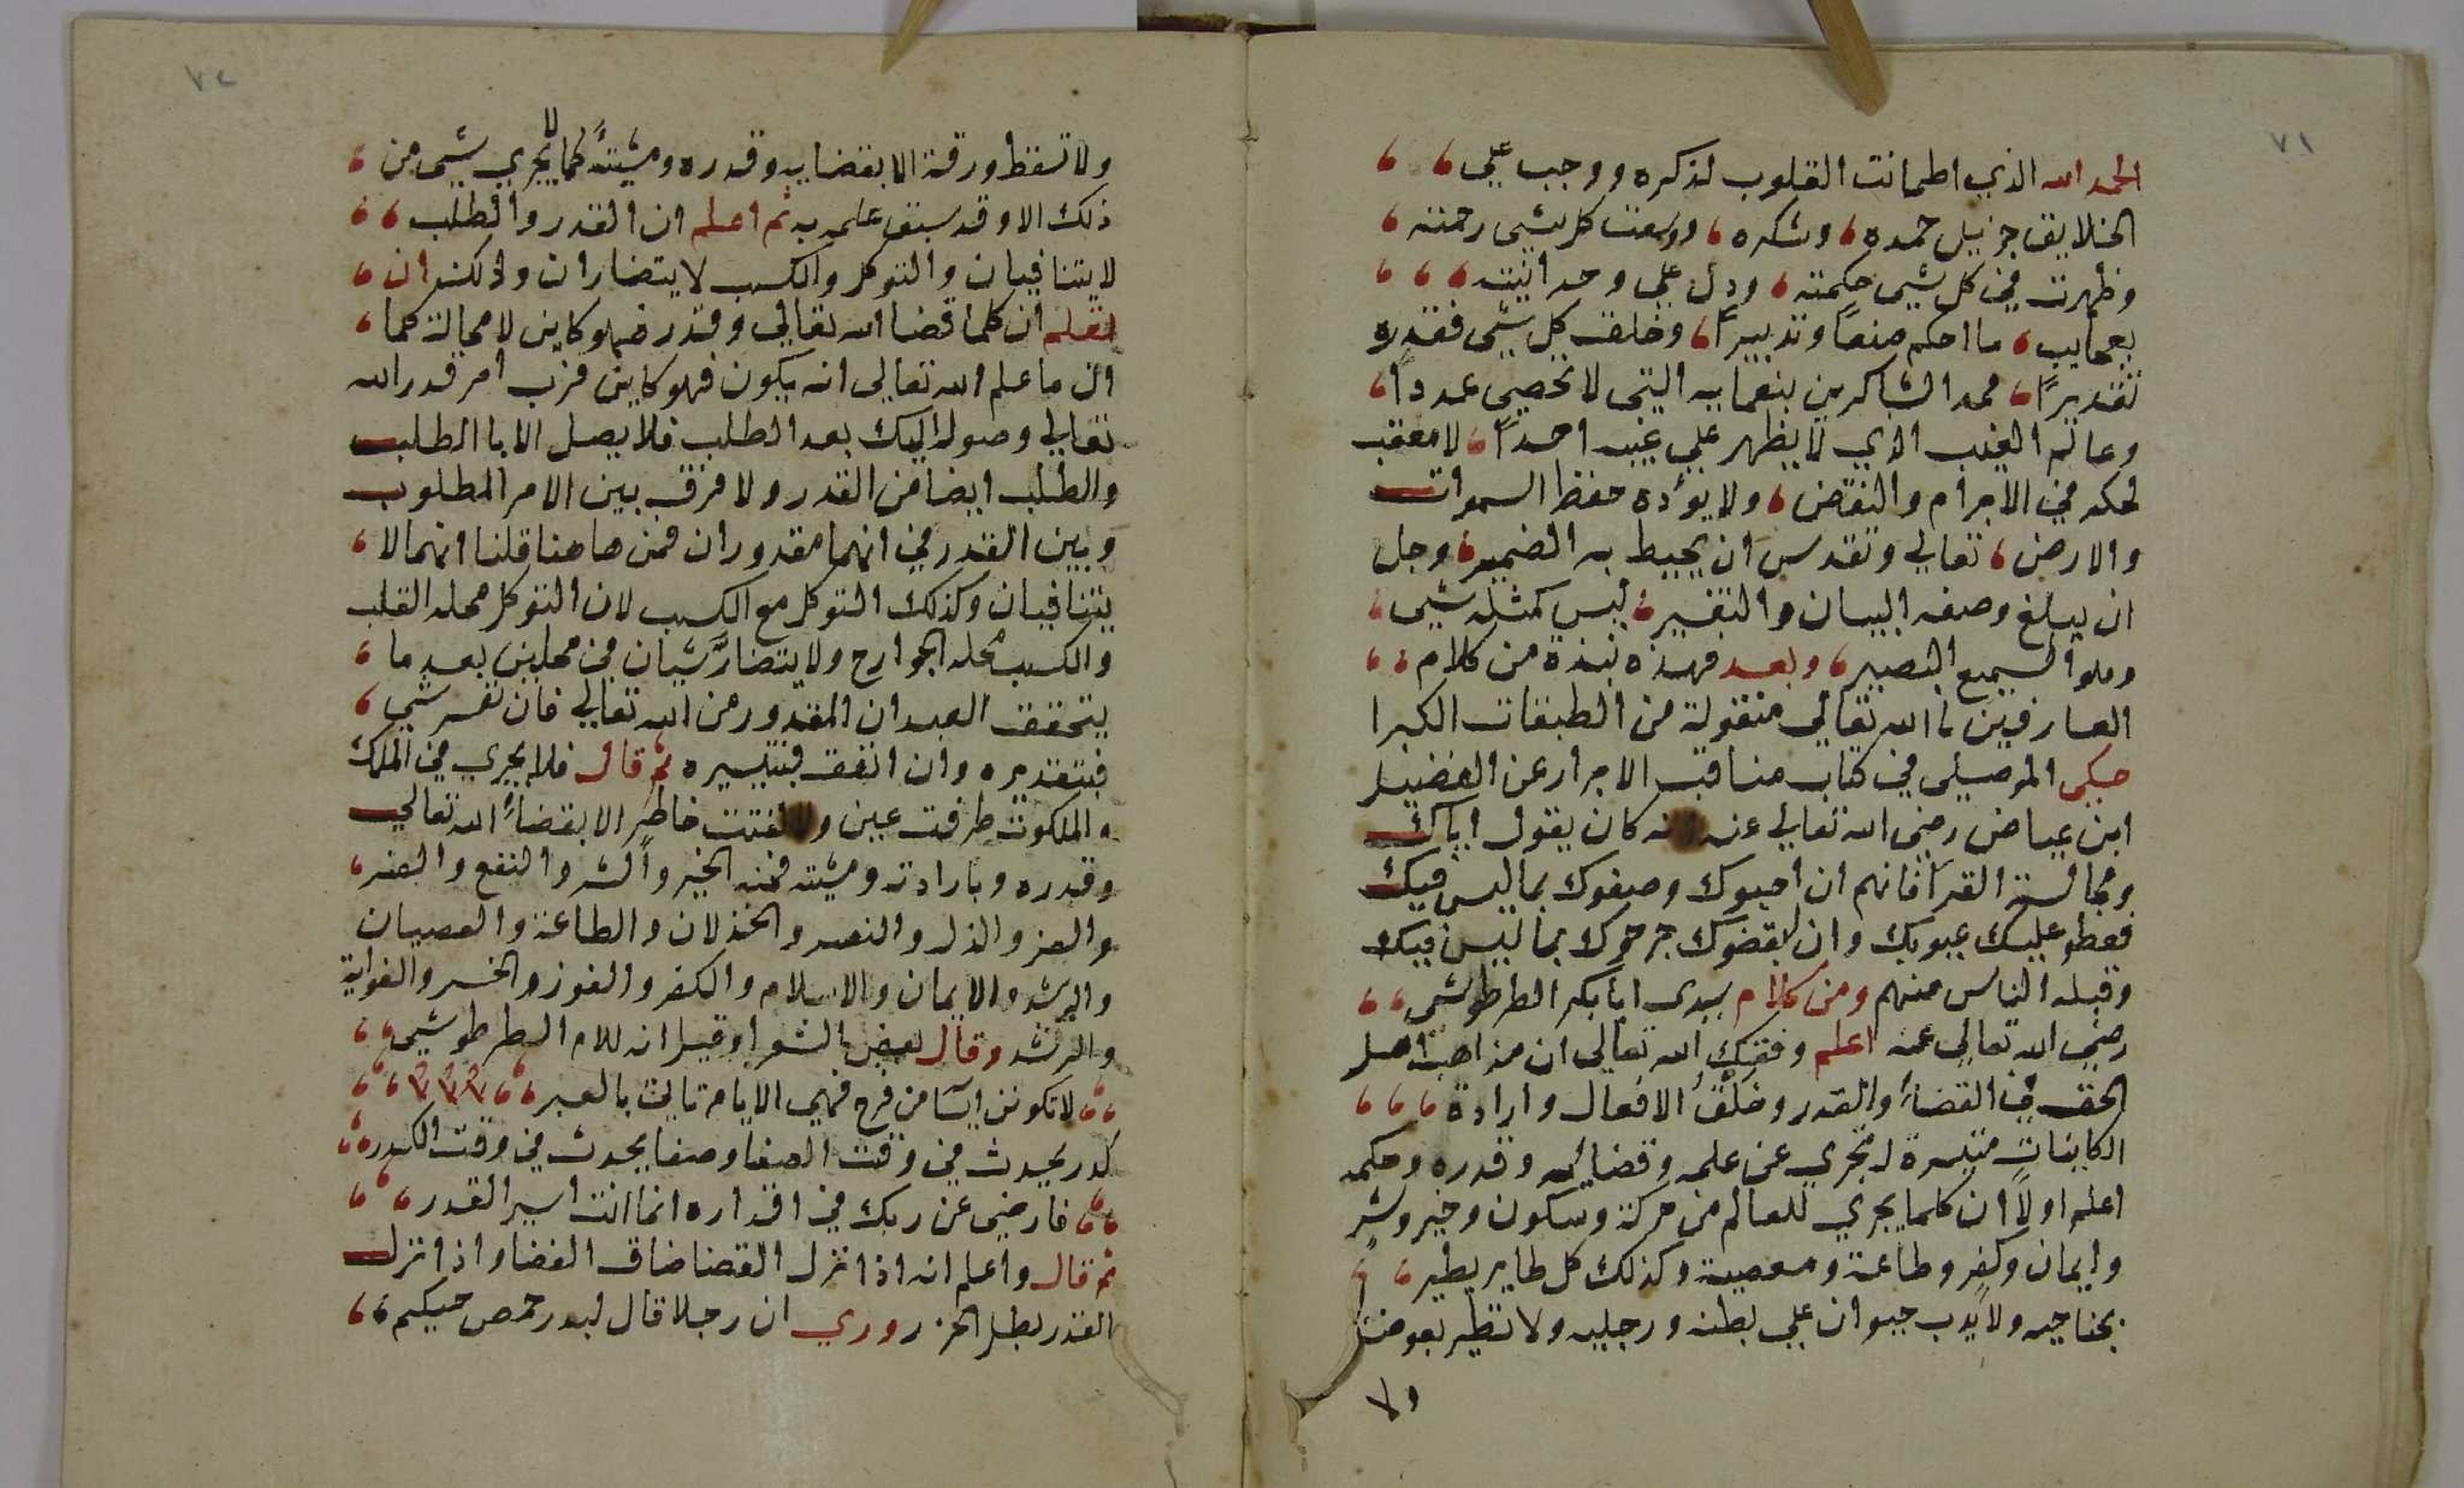 ٧١
الحمد الله الذي اطمانت القلوب لذكره ووجب علي
الخلايق جزيل حمده وشكره ووسعت كل شيى رحمته
وظهرت في كل شيى حكمته ودل علي وحدانيته
بعجايب ما احكم صنعاً وتدبيراً وخلق كل شيى فقدره
تقديراً محمد الشاكرين بنعمايه التي لا تحصي عددا
وعالم الغيب الذي لا يظهر علي غيبه احداً لا معقب
لحكمه في الابرام والنقض ولا يؤده حفظ السموات
والارض تعالي وتقدس ان يحيط به الضمير وجل
ان يبلغ وصفه البيان والتفسير ليس كمثله شيى
وهو السميع البصير وبعد فهذه نبذة من كلام
العارفين باالله تعالي منقولة من الطبقات الكبرا
حكى الموصيلى في كتاب مناقب الابرار عن الفضيل
ابن عياض رضي الله تعالي عنه انه كان يقول اياك
ومجالسة القرآ فانهم ان احبوك وصفوك بما ليس فيك
فغطو عليك عيوبك وان بغضوك جرحوك بما ليس فيك
وقبله الناس منهم ومن كلام سيدى ابابكر الطرطوشى
رضي الله تعالي عنه اعلم وفقك الله تعالى ان مذاهب اهل
الحق في القضاء والقدر وخلق الافعال وارادة
الكاينات متيسرة لمجري عن علمه وقضائه وقدره وحكمه
اعلم اولاً ان كلما يجري للعالم من حركة وسكون وخير وشر
وايمان وكفر وطاعة ومعصية وكذلك كل طاير يطير
بجناحيه ولا يدب حيوان علي بطنه ورجليه ولا تطير بعوضة
ولا
٧٢
ولا تسقط ورقة الا بقضايه وقدره ومشيته كما لا يجري شيى من
ذلك الا وقد سبق علمه به ثم اعلم ان القدر والطلب
لا يتنافيان والتوكل والكسب لا يتضاران وذلك ان
تعلم ان كلما قضا الله تعالي وقدر فهو كاين لا محالة كما
ان ما علم الله تعالى انه يكون فهو كاين فرب امر قدر الله
تعالي وصوله اليك بعد الطلب فلا يصل الا با الطلب
والطلب ايضا من القدر ولا فرق بين الامر المطلوب
وبين القدر في انهما مقدوران فمن هاهنا قلنا انهما لا
يتنافيان وكذلك التوكل مع الكسب لان التوكل محله القلب
والكسب محله الجوارح ولا يتضار شيان في محلين بعد ما
يتحقق العبد ان المقدور من الله تعالي فان تعسر شي
فبتقديره وان اتفق فبتيسيره ثم قال فلا يجري في الملك
والملكوت طرفت عين ولا لفتت خاطر الا بقضاء الله تعالي
وقدره وبارادته ومشيته فمنه الخير والشر والنفع والضر
والعز والذل والنصر والخذلان والطاعة والعصيان
والرشد والايمان والاسلام والكفر والفوز والخسر والغواية
والرشد وقال بعض الشعرا وقيل انه للام الطرطوشي
لا تكونن ايسا من فرج فهي الايام تايت بالعبر
كدر يحدث في وقت الصفا وصفا يحدث في وقت الكدر
فارضى عن ربك في اقداره انما انت اسير القدر
ثم قال واعلم انه اذا نزل القضا ضاق الفضا واذا نزل
القدر بطل الحذر وروي ان رجلا قال لبدرحمص حيكم